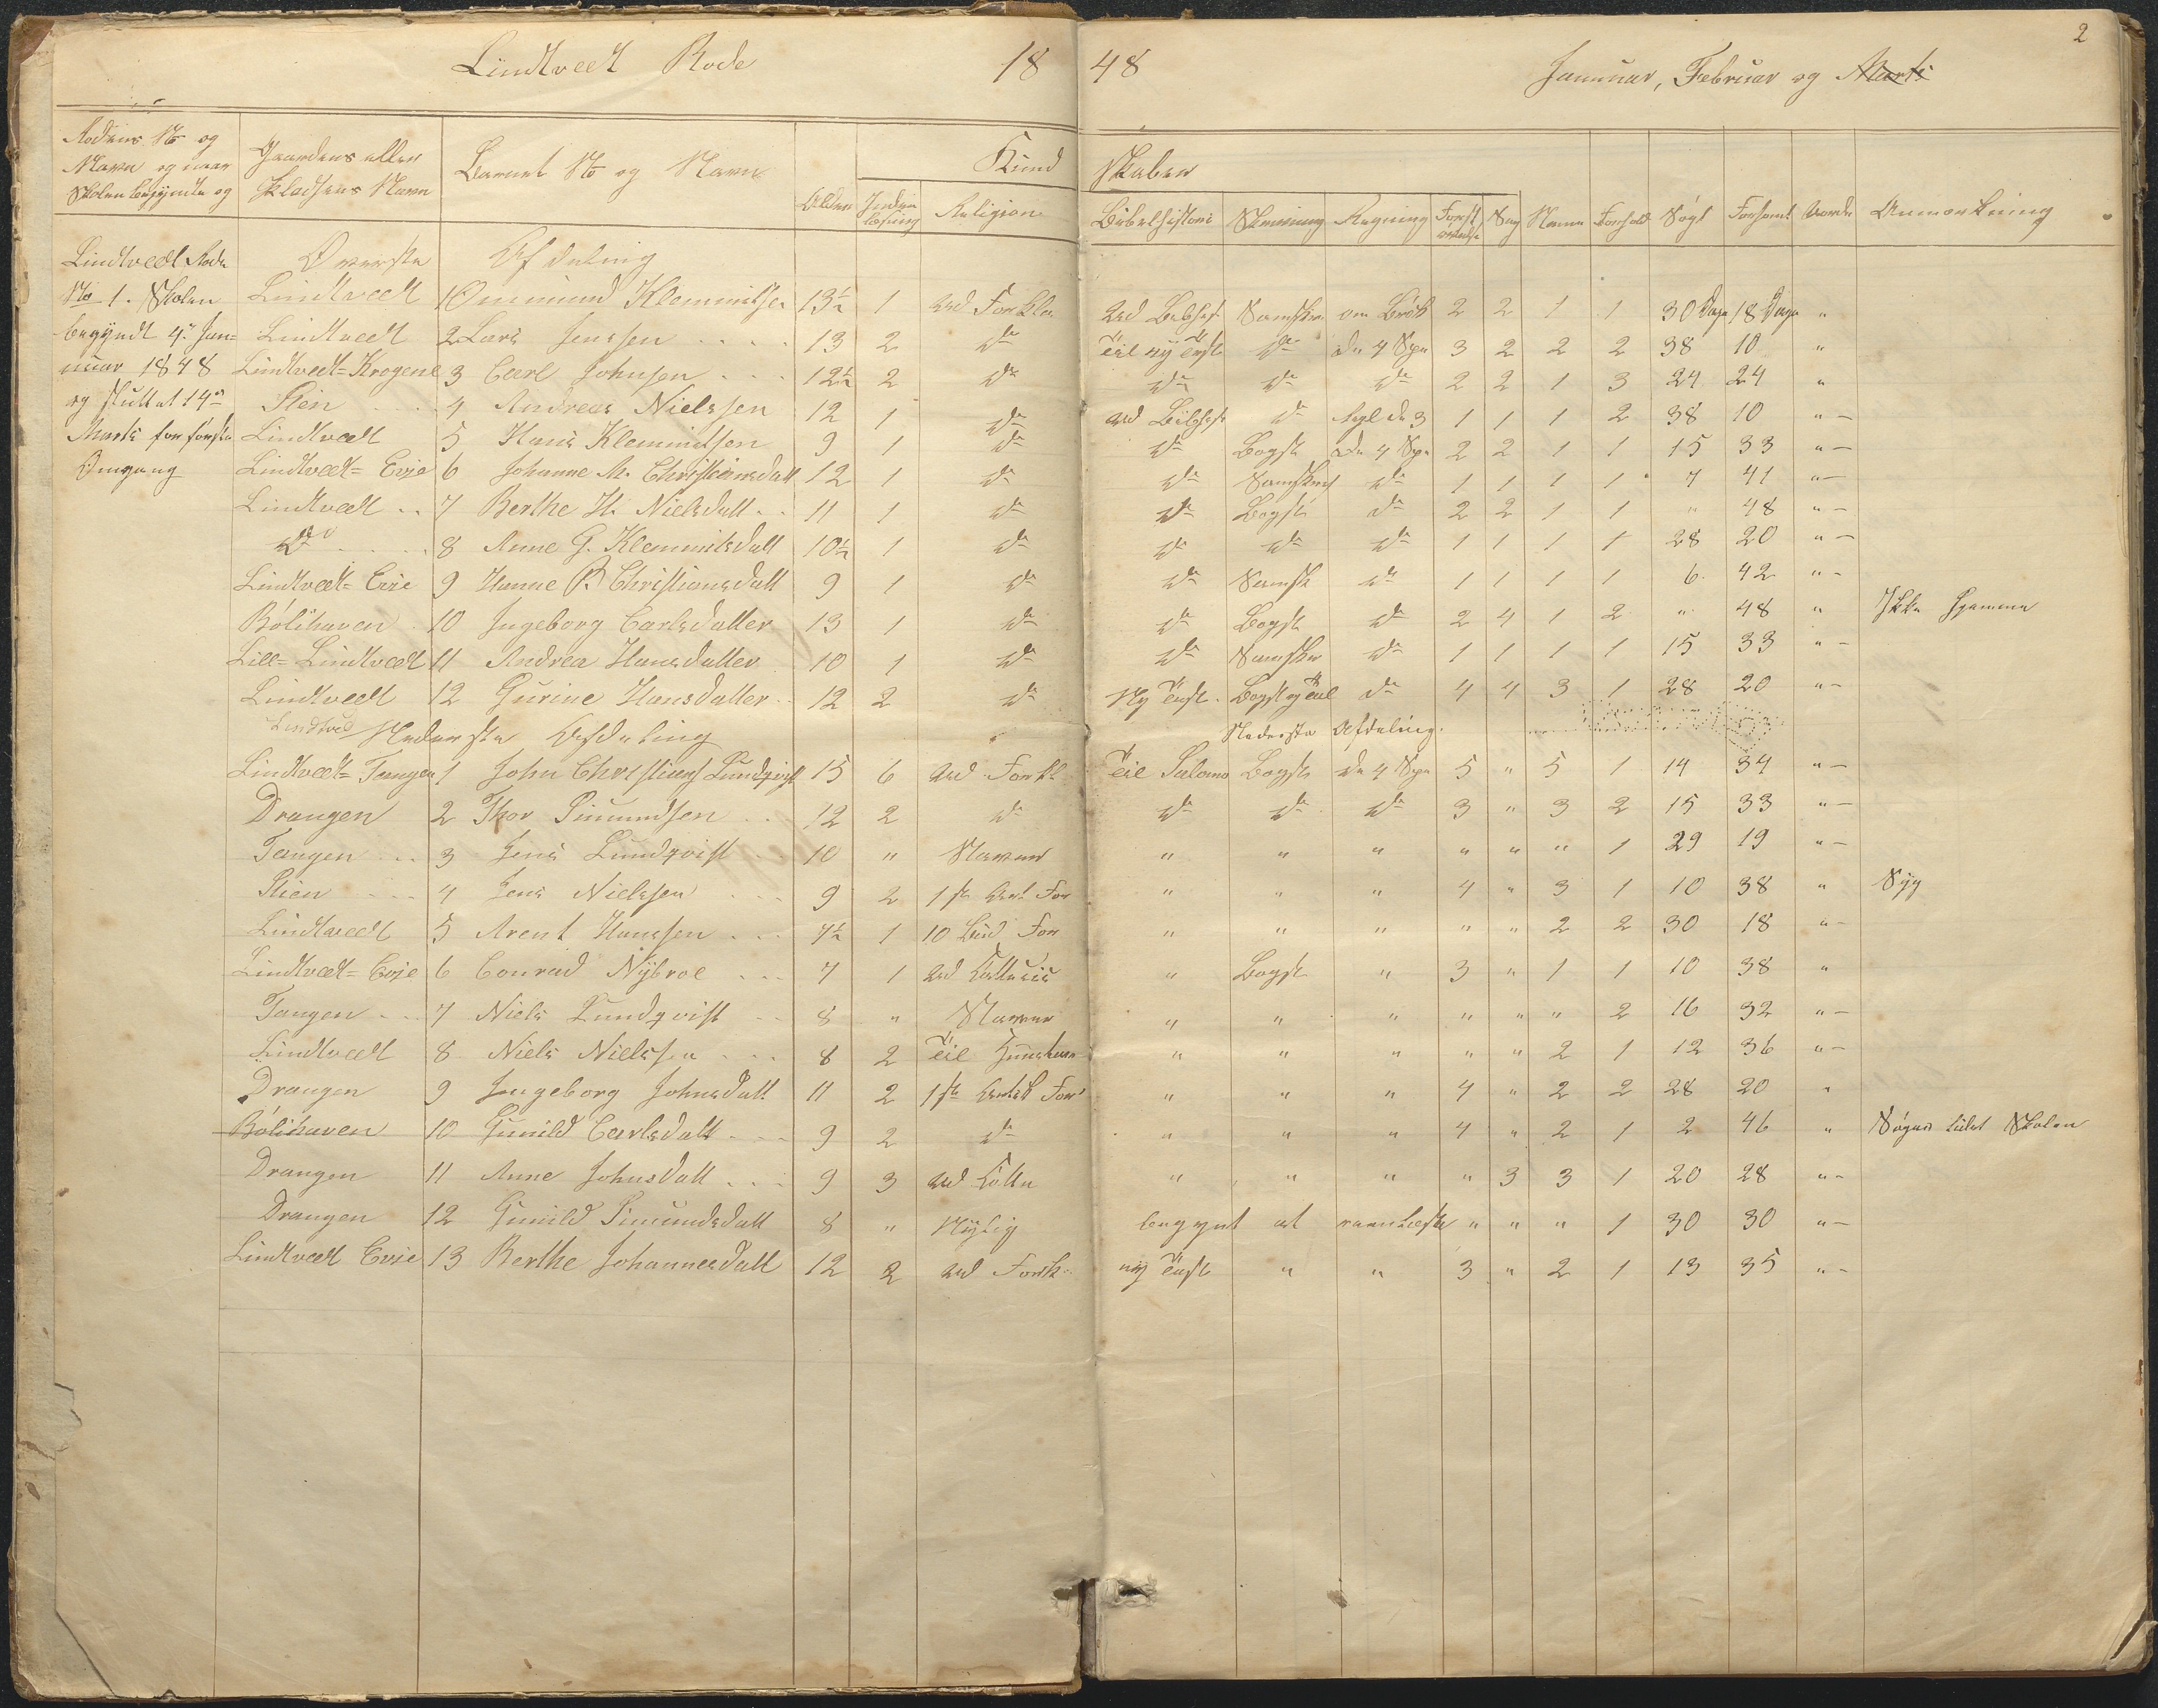 2
Lindtvedt Rode 18 48 Januar, Februar og Marts
Rodens No og Navn og naar Skolen begyndte og
Gaardens eller Pladsens Navn
Barnets No og Navn
Alder
Kund skaber
Inden læsning
Religion
Bibelhistori
Skrivning
Regning
Sang
Nemme
Forhold
Søgt
Forsømt
Anmærkning
Lindtvedt Rode
No 1. Skolen
begyndt 4de Jan-
uar 1848
og sluttet 14de
Marts for første
Omgang
Øverste Afdeling
Lindtvedt 1 Ommund Klemmitsen 13½ 1 ved Forkla ved Bibhist Samskr om Brøk 2 2 1 1 30 Dage 18 Dage "
Lindtvedt 2 Lars Jenssen 13 2 do Til ny Test do de 4 Spe 3 2 2 2 38 10 "
Lindtvedt=Krogene 3 Carl Johnsen 12½ 2 do do do do 2 2 1 3 24 24 "
Stien 4 Andreas Nielssen 12 1 do ved Bibhist do de 3 1 1 1 2 38 10 "
Lindtvedt 5 Hans Klemmitsen 9 1 do do Bogst de 4 Spe 2 2 1 1 15 33 "
Lindtvedt=Evje 6 Johanne M. Christiansdatt 12 1 do do Samskr do 1 1 1 1 7 41 "
Lindtvedt 7 Berthe H. Nielsdatt 11 1 do do Bogst do 2 2 1 1 " 48 "
do 8 Anne G. Klemmitsdatt 10½ 1 do do do do 1 1 1 1 28 20 "
Lindtvedt=Evje 9 Hanne P. Christiansdatt 9 1 do do Samsk do 1 1 1 1 6 42 "
Bölihaven 10 Ingeborg Carlsdatter 13 1 do do Bogst do 2 4 1 2 " 48 " Ikke hjemme
Lille=Lindtvedt 11 Andrea Hansdatter 10 1 do do Samskr do 1 1 1 1 15 33 "
Lindtvedt 12 Gurine Hansdatter 12 2 do Ny Test. Bogst og Tal do 4 4 3 1 28 20 "
Lindtved Nederste Afdeling Nederste Afdeling.
Lindtvedt=Tangen 1 John Christians Lundqvist 15 6 ved Forkl Til Salomo Bogst de 4 Spe 5 " 5 1 14 34 "
Drangen 2 Thor Simundsen 12 2 do do do do 3 " 3 2 15 33 "
Tangen 3 Jens Lundqvist 10 " Staver " " " " " " 1 29 19 "
Stien 4 Jens Nielssen 9 2 1ste For " " " 4 " 3 1 10 38 " Syg
Lindtvedt 5 Arent Hanssen 7½ 1 10 Bud For " " " " " 2 2 30 18 "
Lindtvedt=Evje 6 Conrad Nybroe 7 1 " Bogst " 3 " 1 1 10 38 "
Tangen 7 Niels Lundqvist 8 " Staver " " " " " " 2 16 32 "
Lindtvedt 8 Niels Nielssen 8 2 Til " " " " " 2 1 12 36 "
Drangen 9 Ingeborg Johnsdatt 11 2 1ste For " " " 4 " 2 2 28 20 "
Bölihaven 10 Gunild Carlsdatt 9 2 do " " " 4 " 2 1 2 46 " Søger lidet Skolen
Drangen 11 Anne Johnsdatt 9 3 " " " " 3 3 1 20 28 "
Drangen 12 Gunild Simundsdatt 8 " Nylig begynt at " " " 1 30 30 "
Lindtvedt Evje 13 Berthe Johannesdatt 12 2 ved Fork ny Test " " 3 " 2 1 13 35 "